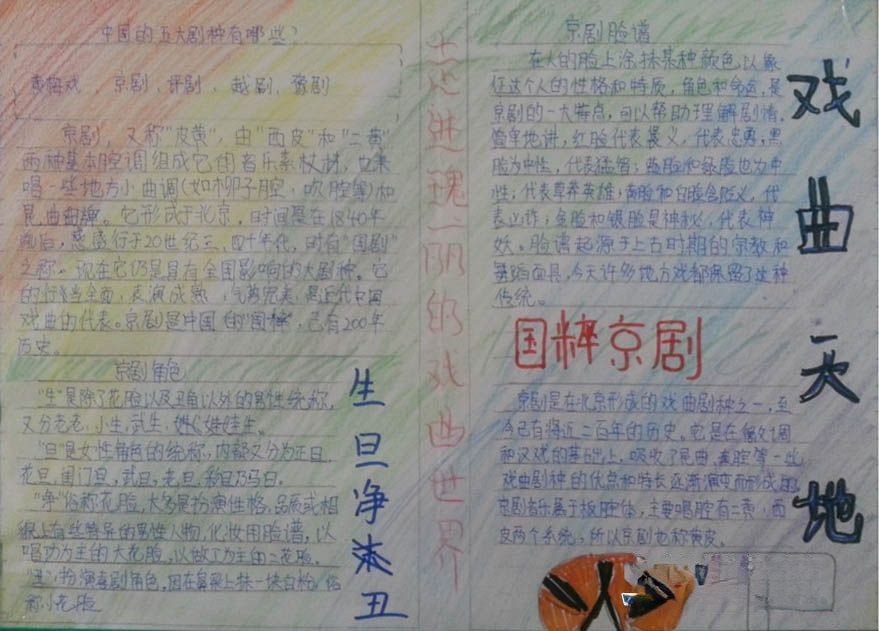 中国的五大剧种有哪些?
黄梅戏、京剧、评剧、越剧、豫剧
京剧,又称"皮黄",由"西皮"和"二黄"
两种基本腔调组成它的音乐素材,也兼
唱一些地方小曲调(如柳子腔,吹腔等)和
昆曲曲牌。它形成于北京,时间是在1840年
前后,盛行于20世纪三、四十年代,时有"国剧"
之称。现在它仍是具有全国影响的大剧种。它
的行当全面,表演成熟,气势完美,是近代中国
戏曲的代表。京剧是中国的"国粹",已有200年
历史。
京剧角色
"生"是除了花脸以及丑角以外的男性统称,
又分老老,小生,武生,娃娃生。
"旦"是女性角色的统称,内部又分为正旦,
花旦,闺门旦,武旦,老旦,彩旦
"净"俗称花脸,大多是扮演性格,品质或相
貌上有些特异的男性人物,化妆用脸谱,以
唱功为主的大花脸,以做工为主的二花脸。
"丑",扮演喜剧角色,因在鼻梁上抹一块白粉,俗
称小花脸
生旦净末丑
走进瑰丽的戏曲世界
京剧脸谱
在人的脸上涂抹某种颜色以象
征这个人的性格和特质,角色和命运,是
京剧的一大特点,可以帮助理解剧情。
简单地讲,红脸代表褒义,代表忠勇;黑
脸为中性,代表猛智;蓝脸和绿脸也为中
性,代表草莽英雄;黄脸和白脸含贬义,代
表凶诈;金脸和银脸是神秘,代表神
妖。脸谱起源于上古时期的宗教和
舞蹈面具,今天许多地方戏都保留了这种
传统。
国粹京剧
京剧是在北京形成的戏曲剧种之一,至
今已有将近二百年的历史。它是在徽调
和汉戏的基础上,吸收了昆曲、秦腔等一些
戏曲剧种的优点和特长逐渐演变而形成的。
京剧音乐属于板腔体,主要唱腔有二黄,西
皮两个系统,所以京剧也称黄皮。
戏曲天地